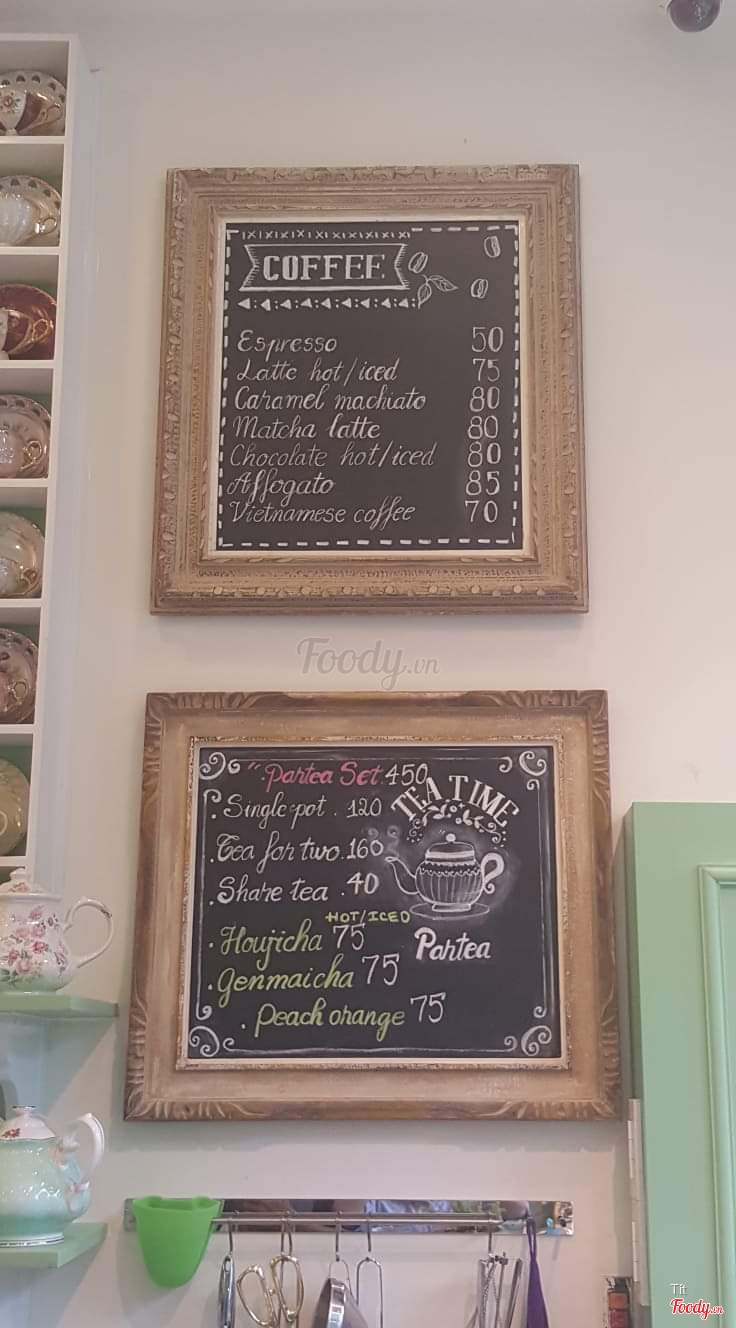 COFFEE
Espresso 50
Latte hot/iced 75
Caramel machiato 80
Matcha latte 80
Chocolate hot/iced 80
Affogato 85
Vietnamese coffee 70
Foody.vn
"Partea Set 450
TEA TIME
. Single pot . 120
. Tea for two . 160
. Share tea . 40
HOT/ICED
. Houjicha 75
Partea
. Genmaicha 75
. Peach orange 75
Tít
Foody.vn